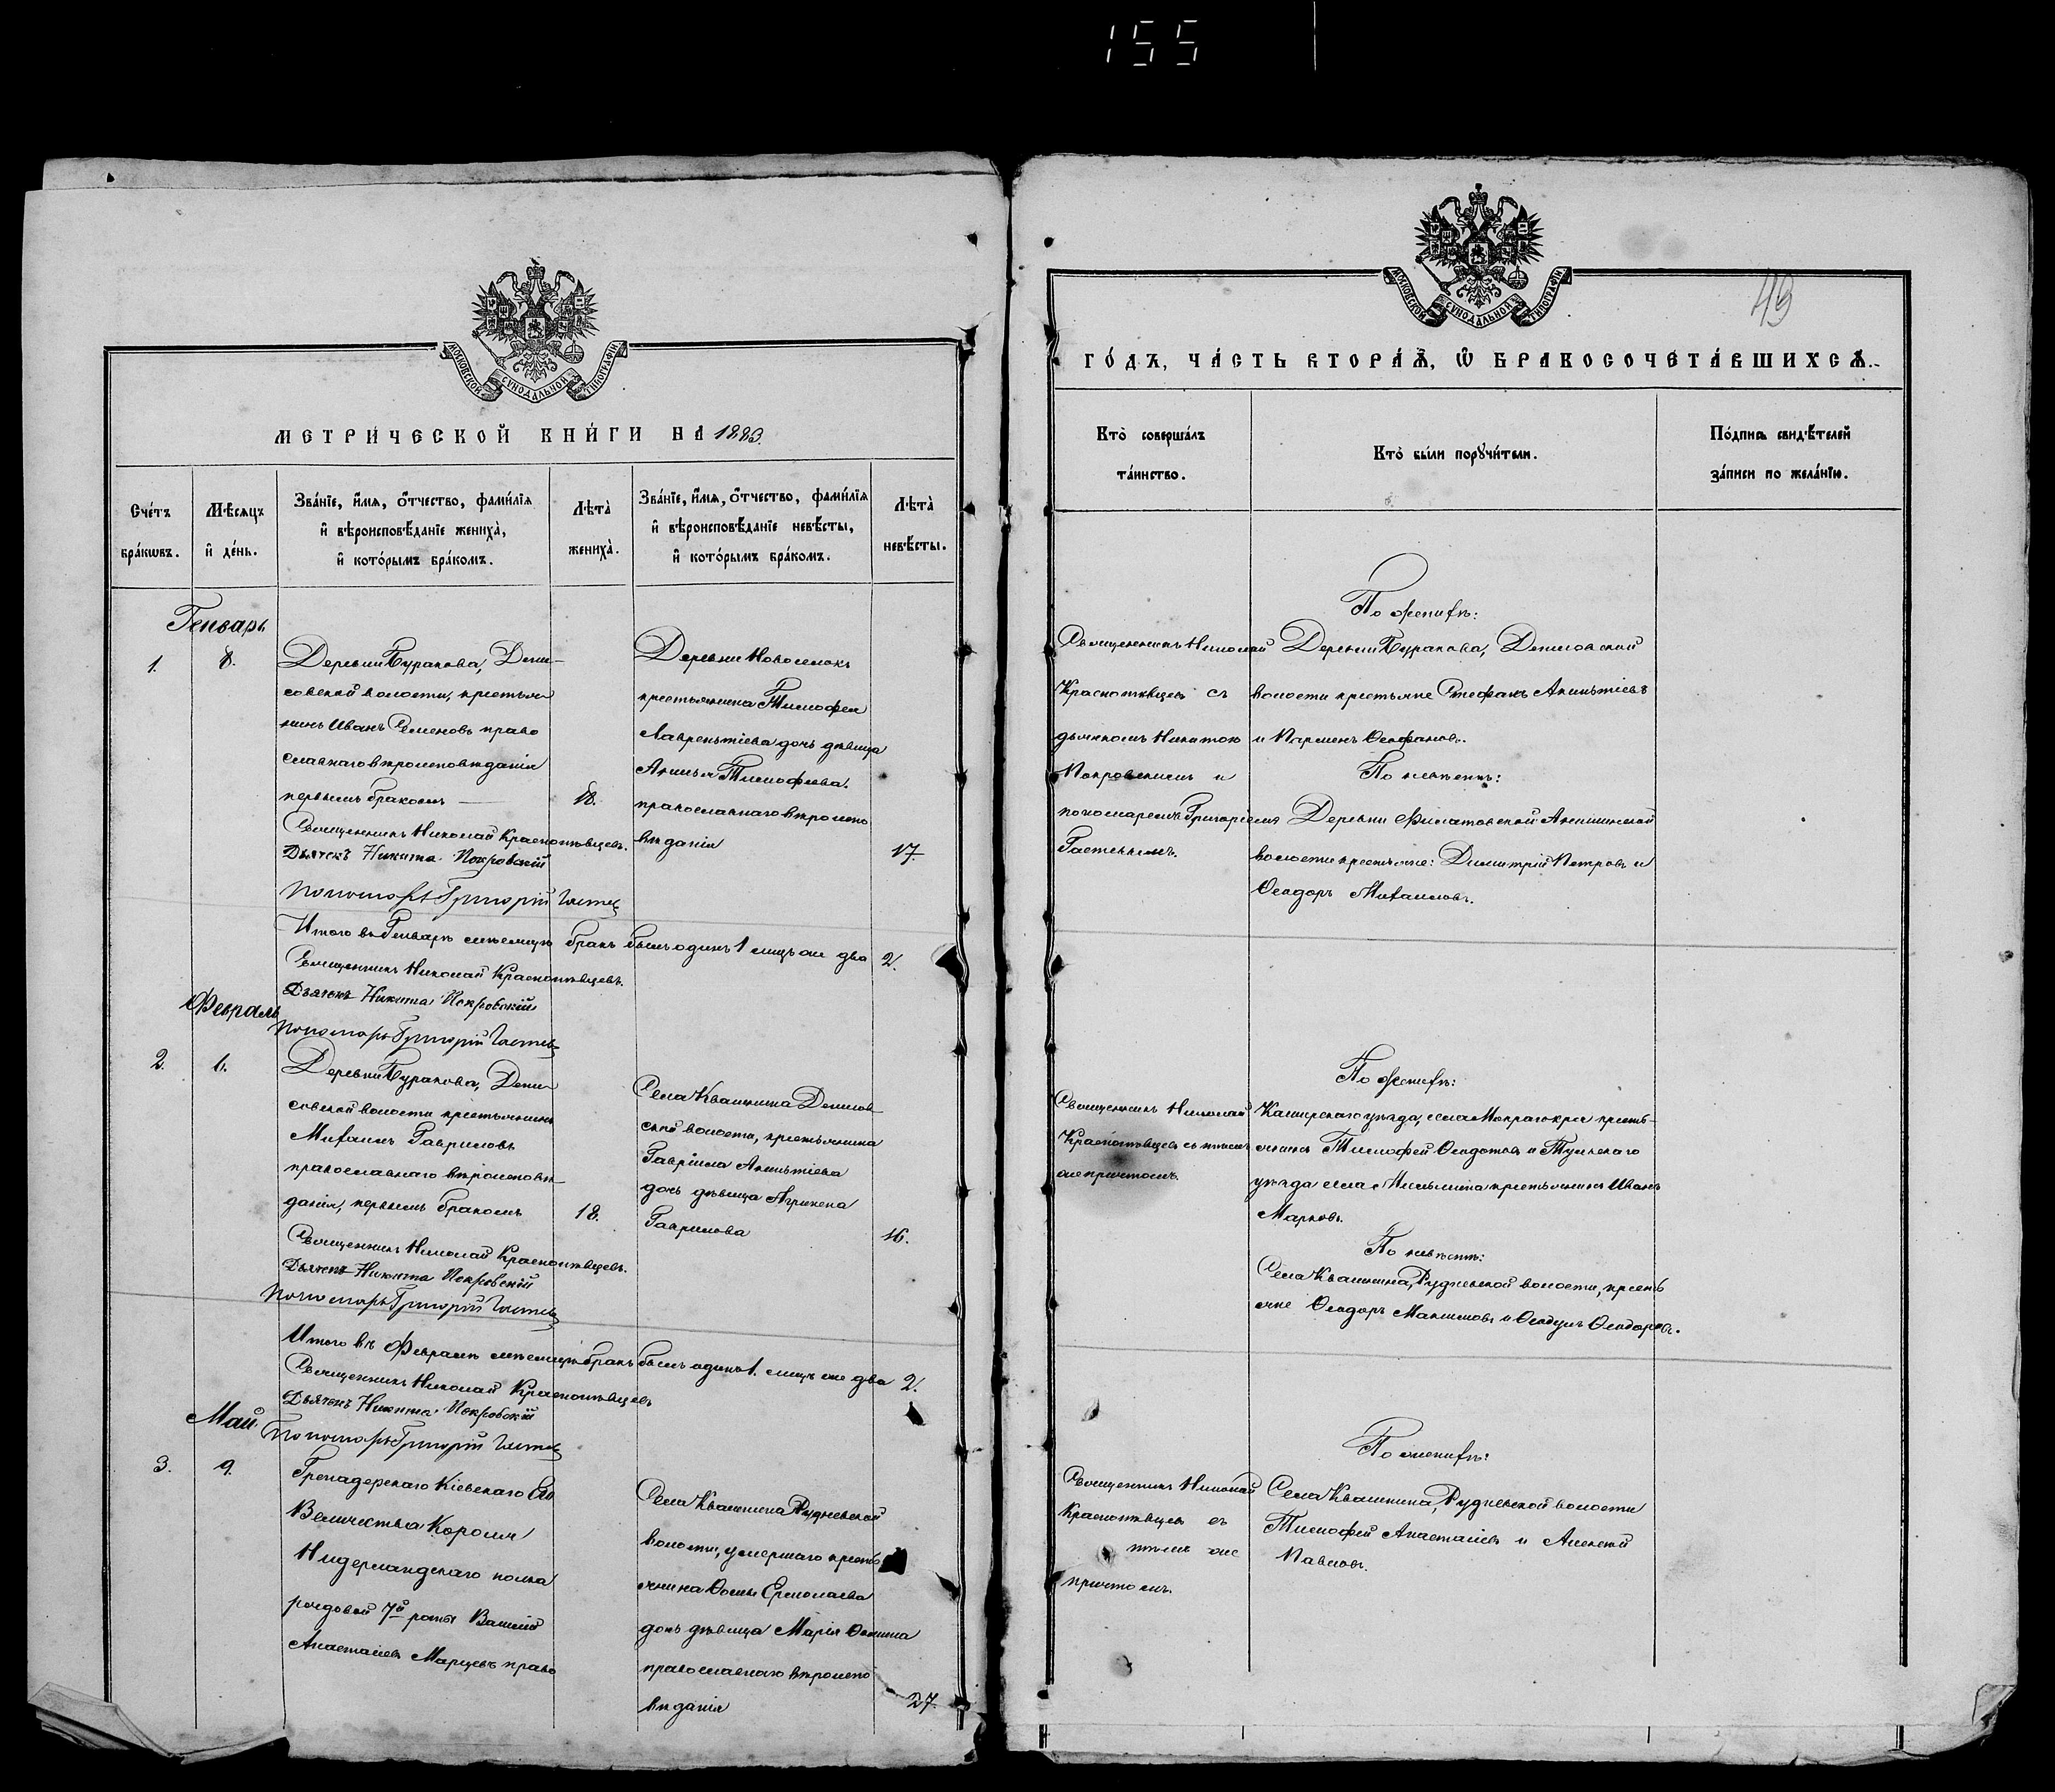 155
МОСКОВСКОЙ СѴНОДАЛЬНОЙ ТИПОГРАФІИ
МЕТРИ́ЧЕСКОЙ КНИ́ГИ НА 1883.
Сче́тъ бра́кѡвъ.
Мѣ́сяцъ и҆ де́нь.
Зва́нїе, и҆́мя, ѻ҆́тчество, фами́лїя
и҆ вѣроисповѣ́данїе жениха̀,
и҆ кото́рымъ бра́комъ.
Лѣ́та̀ жениха̀.
Зва́нїе, и҆́мя, ѻ҆́тчество, фами́лїя
и҆ вѣроисповѣ́данїе невѣ́сты,
и҆ кото́рымъ бра́комъ.
Лѣ́та̀ невѣ́сты.
Генварь
1. 8.
Деревни Буракова, Дени-
совской волости, крестья
нинъ Иванъ Семеновъ право
славнаго вѣроисповѣданія
первымъ бракомъ —
18.
Священникъ Николай Краснопѣвцевъ.
Дьячекъ Никита Покровскій
Пономарь Григорій
Деревни Новоселокъ
крестьянина Тимофея
Лаврентіева дочь дѣвица
Тимофеева.
православнаго вѣроиспо
вѣданія
17.
Итого въ Генварѣ мѣсяцѣ бракъ былъ одинъ 1 лицъ же два 2.
Священникъ Николай Краснопѣвцевъ.
Дьячекъ Никита Покровскій
Пономарь Григорій
Февраль
2. 6.
Деревни Буракова, Дени
совской волости крестьянинъ
Михаилъ Гавриловъ
православнаго вѣроисповѣ-
данія, первымъ бракомъ
18.
Священникъ Николай Краснопѣвцевъ.
Дьячекъ Никита Покровскій
Пономарь Григорій
Села Квашнина Денисов
ской волости, крестьянина
Гавріила Акинтіева
дочь дѣвица Агрипена
Гаврилова
16.
Итого въ Февралѣ мѣсяцѣ бракъ былъ одинъ 1. лицъ же два 2.
Священникъ Николай Краснопѣвцевъ
Дьячекъ Никита Покровскій
Пономарь Григорій
Май
3. 9.
Гренадерскаго Кіевскаго Его
Величества Короля
Нидерландскаго полка
рядовой 7й роты Василій
Анастасіевъ право
Села Квашнина Рудневской
волости, умершаго кресть
янина Ѳомы Ермолаева
дочь дѣвица Марія Ѳомина
православнаго вѣроиспо
вѣданія
27.
МОСКОВСКОЙ СѴНОДАЛЬНОЙ ТИПОГРАФІИ
49
ГО́ДЪ, ЧА́СТЬ ВТОРА́Ѧ, Ѡ҆ БРАКОСОЧЕТА́ВШИХСѦ.
Кто̀ соверша́лъ та́инство.
Кто̀ бы́ли порꙋчи́тели.
По́дпись свидѣ́телей за́писи по жела́нїю.
Священникъ Николай
Краснопѣвцевъ съ
дьячкомъ Никитою
Покровскимъ и
пономаремъ Григоріемъ
По женихѣ:
Деревни Буракова, Денисовской
волости крестьяне Стефанъ Акинтіевъ
и Парменъ Ѳеофановъ.
По невѣстѣ:
Деревни Филатовской
волости крестьяне: Димитрій Петровъ и
Ѳеодоръ Михаиловъ.
Священникъ Николай
Краснопѣвцевъ съ тѣмъ
же причтомъ.
По женихѣ:
Каширскаго уѣзда, села кресть-
янинъ Тимофей Ѳедотовъ и Тульскаго
уѣзда села крестьянинъ Иванъ
Марковъ.
По невѣстѣ:
Села Квашнина, Рудневской волости, кресть
яне Ѳеодоръ Максимовъ и Ѳеодоровъ.
Священникъ Николай
Краснопѣвцевъ съ
тѣмъ же
причтомъ.
По женихѣ:
Села Квашнина, Рудневской волости
Тимофей Анастасіевъ и Алексѣй
Павловъ.